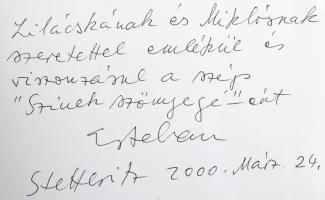 Lilácskának és Miklósnak
szeretettel emlékül és
viszonzásul a szép
"Színek szőnyegé"-ért
Esteban
Stetteritz 2000. Márz. 24.